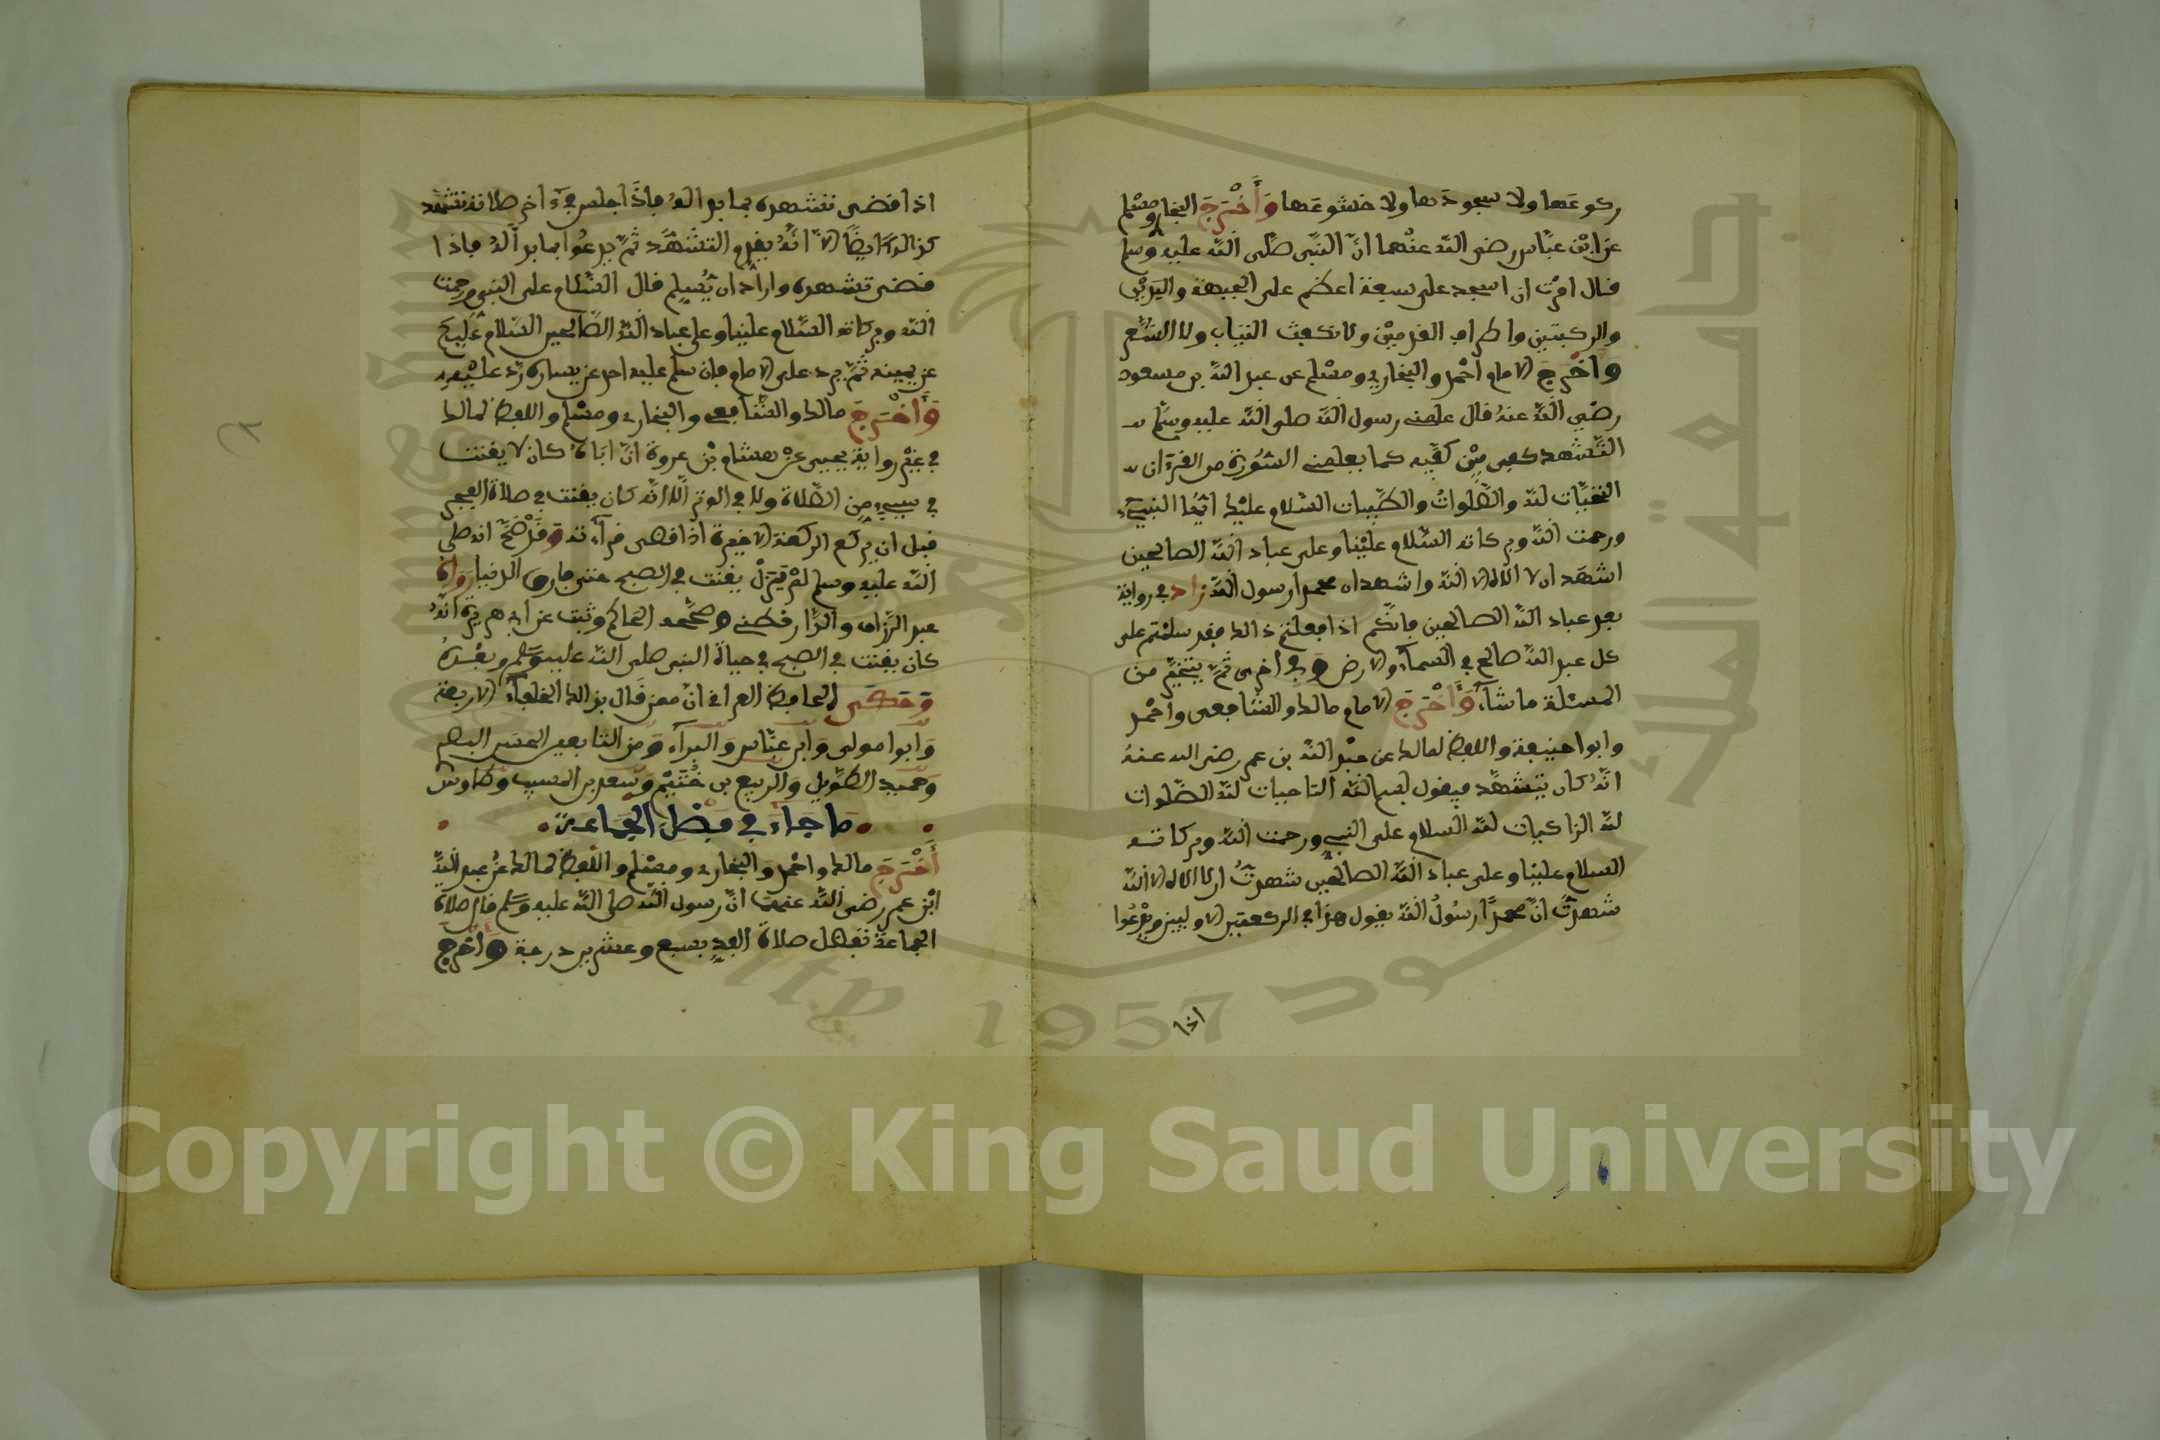 ركوعها ولا سجودها ولا خشوعها وَأَخْرَجَ البخار ومسْلم
عن ابْن عبّاس رضى اللّه عنْهما انّ النّبى صلّى اللّه عليه وسلم
فال امرْت ان اسجد على سبعة اعظم على الجبهة واليدين
والركبتين واطراف الفدميْن ولا نكفت الثياب ولا الشعر
وَأَخْرَجَ الامام أحْمد والبخارى ومسْلم عن عبد اللّه بن مسعود
رضي اللّه عنهُ فال علمنى رسول اللّه صلى اللّه عليه وسلم
التّشهد كفى بيْن كفّيه كما يعلمنى السّورة من الفرءان
التحيّات للّه والصّلواتُ والطّيبات السّلام عليْك ايّها النبيء
ورحمت اللّه وبركاته السّلام عليْنا وعلى عباد اللّه الصالحين
اشهد ان لا اله الا اللّه واشهد ان محمدا رسول اللّه زاد في رواية
بعد عباد اللّه الصالحين فإنّكم اذا فعلتم ذالك ففد سلمْتم على
كل عبد للّه صالح في السمآء والارض وفي اخرى ثمّ يتخيّر من
المسئلة ما شآء وَأَخْرَجَ الامام مالك والشّافعى وأحْمد
وابوا حنيفة واللفظ لمالك عن عبْد اللّه بن عمر رضى الله عنهُ
انّهُ كان يتشهّد فيفول بسم اللّه التاحيات للّه الصّلوات
للّه الزاكيات للّه السلام على النبيء ورحمت اللّه وبركاته
السلام عليْنا وعلى عباد اللّه الصالحين شهدتُّ ان لا اله الا اللّه
شهدتُّ انّ محمدًا رسُولُ اللّه يفول هذا في الركعتين الاوليين ويدْعُوا
اذا
اذا فضى تشهده بما بدا لهُ فإذا جلس في ءاخر صلاته تشهّد
كذالك ايضًا الاّ انّهُ يفدم التشهّد ثمّ يدعُوا بما بدا لهُ فإذا
فضى تشهده واراد ان يُّسلم فال السّلام على النبيء ورحمت
اللّه وبركاته السّلام علينا وعلى عباد اللّه الصّالحين السّلام عليكم
عن يمينه ثمّ يرد على الامام فإن سلم عليه احد عن يساره ردّ عليْه
وَأَخْرَجَ مالك والشّافعى والبخارى ومسْلم واللفظ لمالك
في غيْر رواية يحيى عنْ هشام بْن عروة انّ اباهُ كان لا يفنت
في شيء من الصّلاة ولا في الوتر الّا انّه كان يفنت في صلاة الفجر
فبل ان يركع الركعة الاخيرة اذا فضى فرآءته وفدْ صَحَّ انه صلى
اللّه عليه وسلم لمْ يَزلْ يفنت في الصبح حتى فارق الدنيا رواهُ
عبد الرّزاق والدّارفطنى وصحّحه الحاكم وثبت عن ابي هريرة انّهُ
كان يفنت في الصبح في حياة النبى صلى اللّه عليه وسلم وبعْدهُ
وَحكى الحافظ العرافي انّ ممن فال بذالك الخلفآء الاربعة
وَابوا موسى وَابن عبّاس وَالبرآء وَمن التّابعين الحسَن البصرى
وَحميد الطّويل وَالربيع بن خُثَيْم وَسعيد بن المسيب وَطاوس
مَا جَآءَ فِي فضْل الجَماعة
أَخْرَجَ مالك واحْمد والبخارى ومسْلم واللّفظ لمالك عنْ عبد اللّه
ابْن عمر رضى اللّه عنهمَا انّ رسول اللّه صلى اللّه عليه وسلم فال صلاة
الجماعة تفضل صلاة الفذ بسبع وعشرين درجة وأَخْرج
Copyright © King Saud University
1957